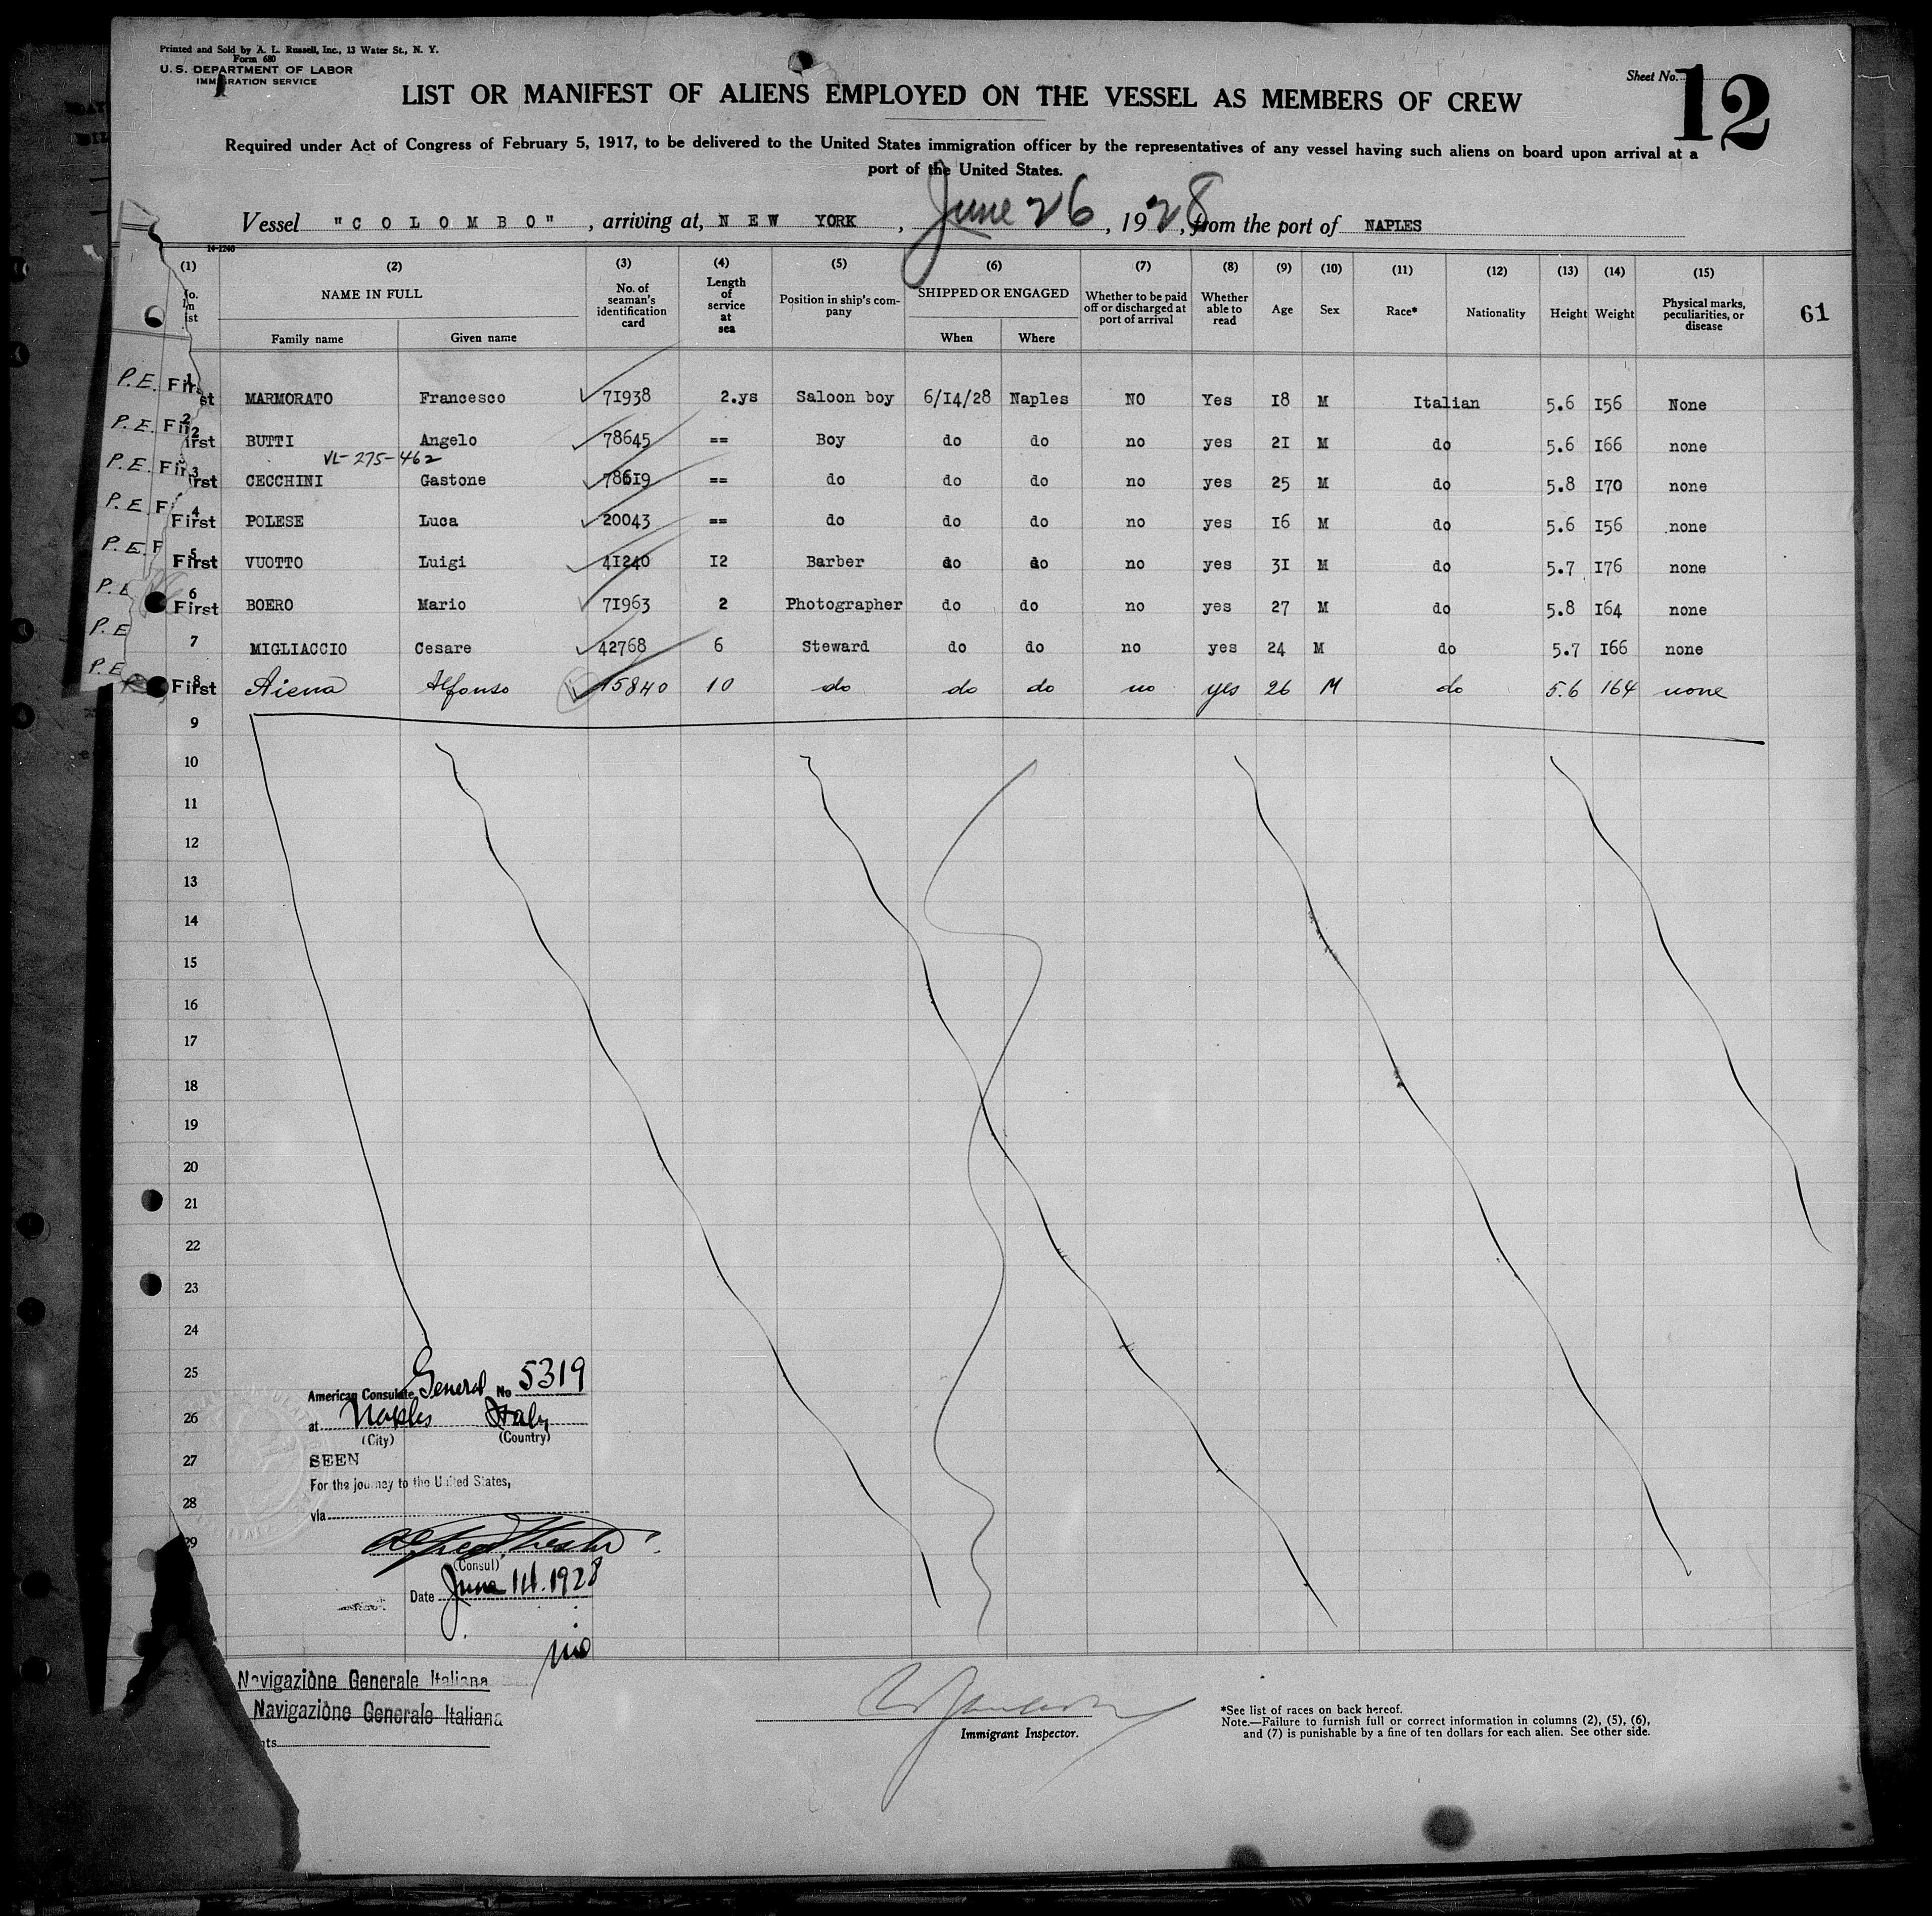 Printed and Sold by A. L. Russell, Inc., 13 Water St., N. Y.
Form 680
U. S. DEPARTMENT OF LABOR
IMMIGRATION SERVICE
Sheet No. 12
LIST OR MANIFEST OF ALIENS EMPLOYED ON THE VESSEL AS MEMBERS OF CREW
Required under Act of Congress of February 5, 1917, to be delivered to the United States immigration officer by the representatives of any vessel having such aliens on board upon arrival at a
port of the United States.
Vessel "COLOMBO", arriving at, NEW YORK, June 26, 1928, from the port of NAPLES
14-1240
(1) (2) (3) (4) (5) (6) (7) (8) (9) (10) (11) (12) (13) (14) (15)
No. in list NAME IN FULL Family name Given name No. of seaman's identification card Length of service at sea Position in ship's company SHIPPED OR ENGAGED When Where Whether to be paid off or discharged at port of arrival Whether able to read Age Sex Race* Nationality Height Weight Physical marks, peculiarities, or disease 61
P.E. First 1 MARMORATO Francesco 71938 2.ys Saloon boy 6/14/28 Naples NO Yes 18 M Italian 5.6 156 None
P.E. First 2 BUTTI Angelo 78645 == Boy do do no yes 21 M do 5.6 166 none
VL-275-462
P.E. First 3 CECCHINI Gastone 78619 == do do do no yes 25 M do 5.8 170 none
P.E. First 4 POLESE Luca 20043 == do do do no yes 16 M do 5.6 156 none
P.E. First 5 VUOTTO Luigi 41240 12 Barber do do no yes 31 M do 5.7 176 none
P.E. First 6 BOERO Mario 71963 2 Photographer do do no yes 27 M do 5.8 164 none
P.E 7 MIGLIACCIO Cesare 42768 6 Steward do do no yes 24 M do 5.7 166 none
P.E First 8 Aiena Alfonso 15840 10 do do do no yes 26 M do 5.6 164 none
9
10
11
12
13
14
15
16
17
18
19
20
21
22
23
24
25
26
27
28
29
American Consulate General No 5319
at Naples Italy
(City) (Country)
SEEN
For the journey to the United States,
via
(Consul)
Date June 14. 1928
Navigazione Generale Italiana
Navigazione Generale Italiana
nts
Immigrant Inspector.
*See list of races on back hereof.
Note.—Failure to furnish full or correct information in columns (2), (5), (6),
and (7) is punishable by a fine of ten dollars for each alien. See other side.